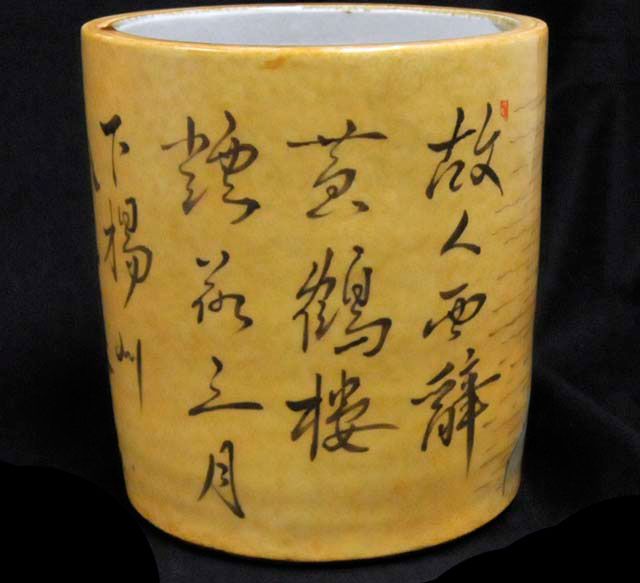 故人西辭
黄鶴樓
煙花三月
下揚州